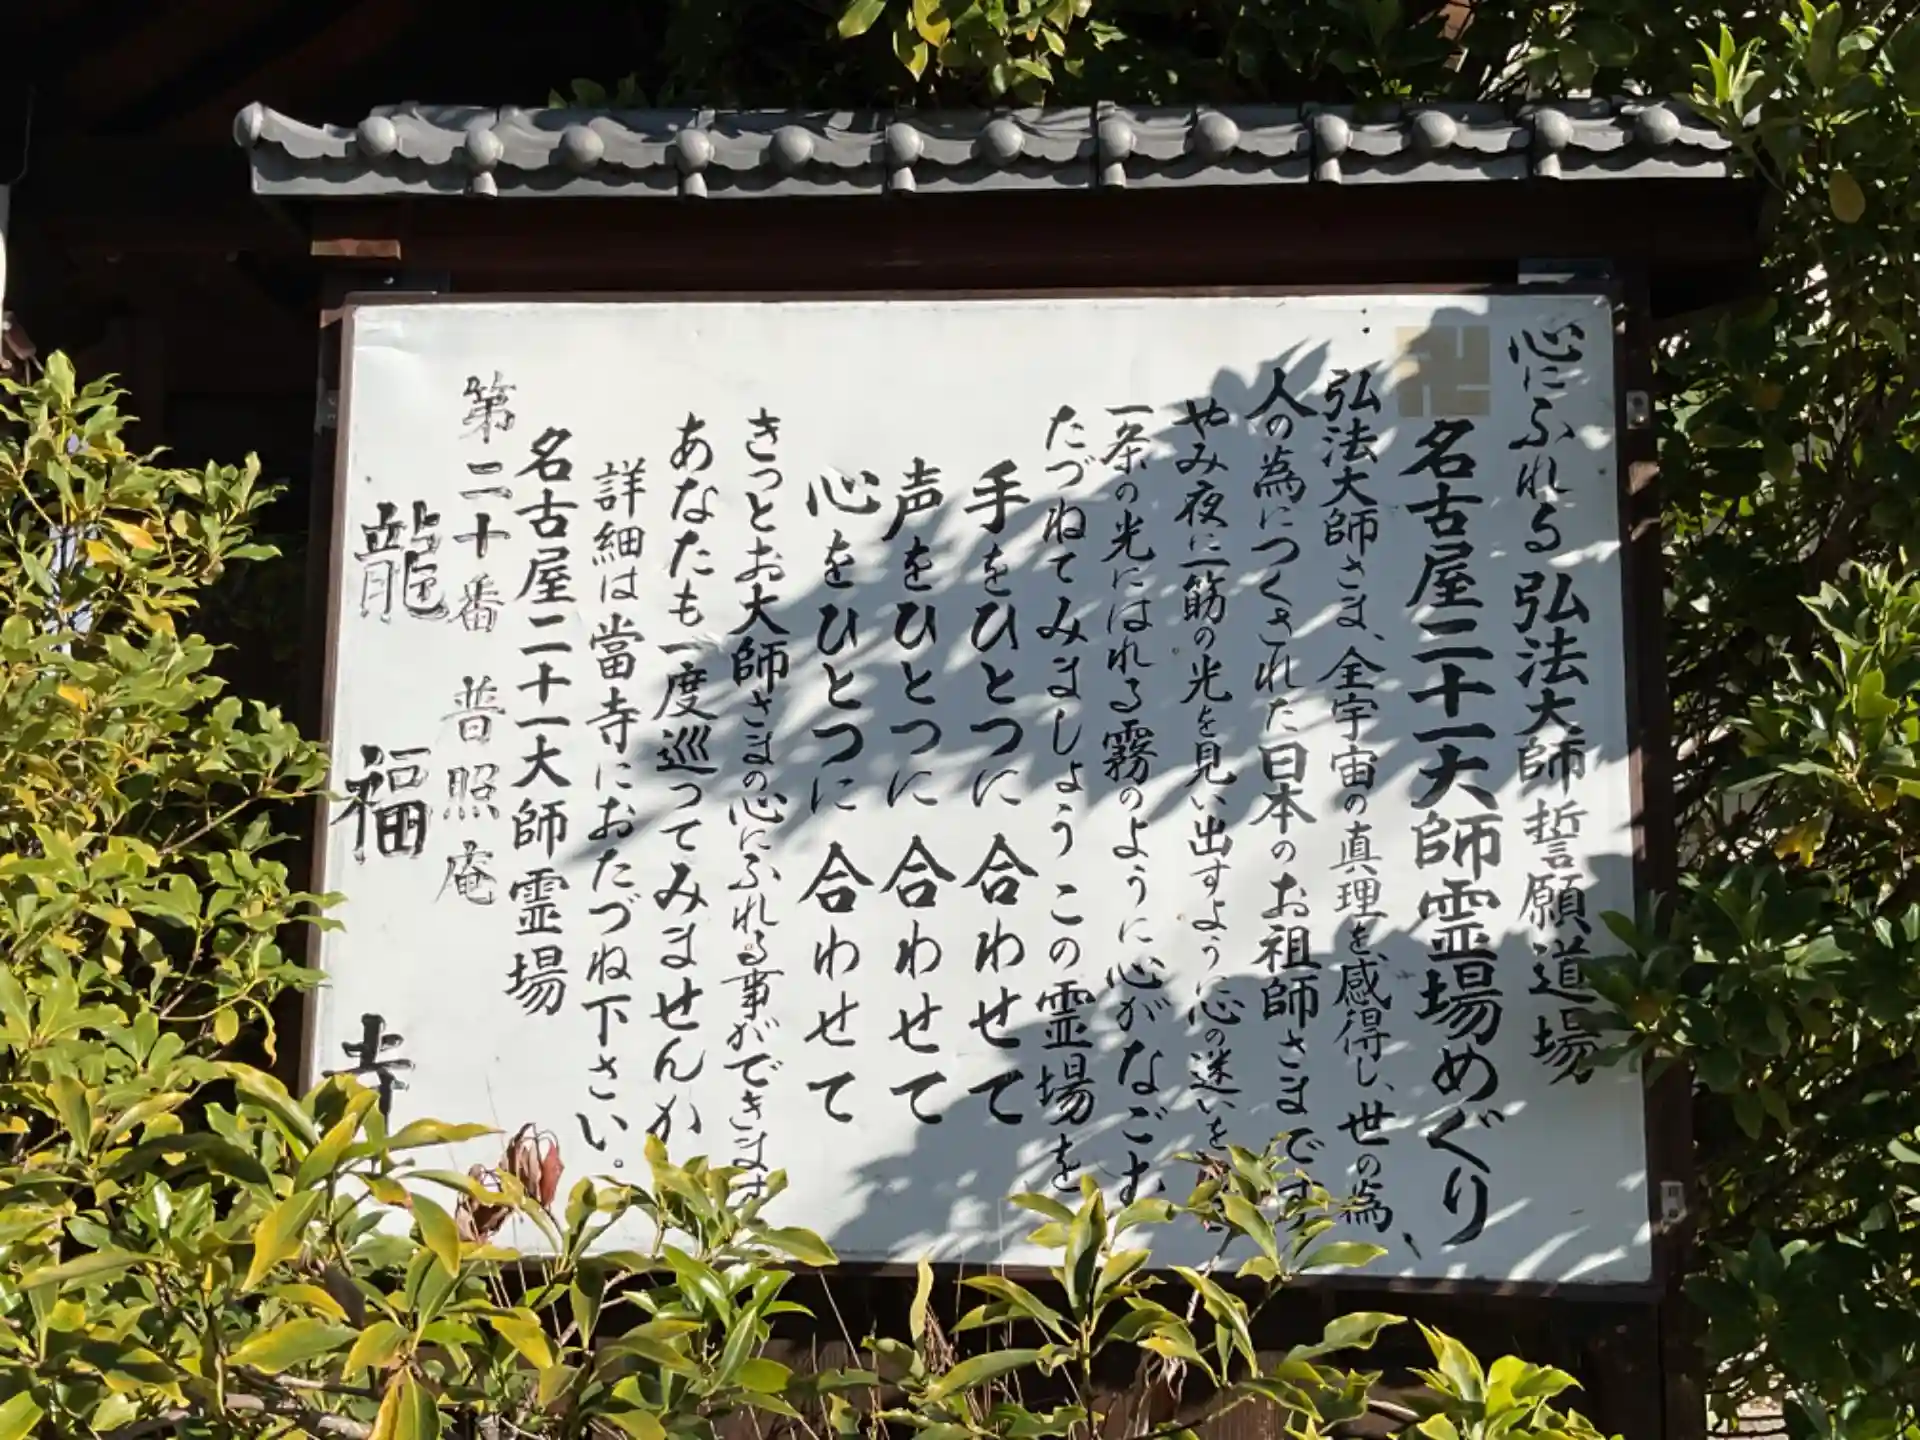 心にふれる弘法大師誓願道場
卍 名古屋二十一大師霊場めぐり
弘法大師さま、全宇宙の真理を感得し、世の為、
人の為につくされた日本のお祖師さまです
やみ夜に一筋の光を見い出すように心の迷いを
一条の光にはれる霧のように心がなごむ
たづねてみましょうこの霊場を
手をひとつに合わせて
声をひとつに合わせて
心をひとつに合わせて
きっとお大師さまの心にふれる事ができます
あなたも一度巡ってみませんか
詳細は當寺におたづね下さい。
名古屋二十一大師霊場
第二十番 普照庵
龍福寺